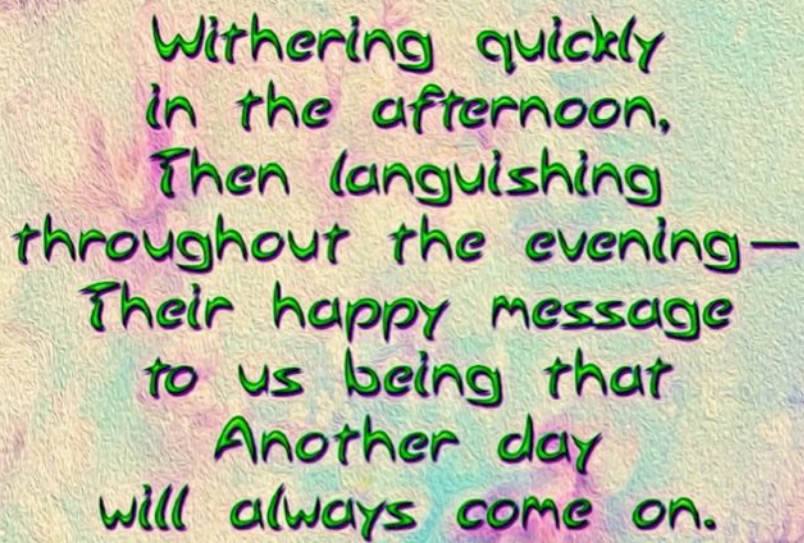 Withering quickly
in the afternoon,
Then languishing
throughout the evening—
Their happy message
to us being that
Another day
will always come on.